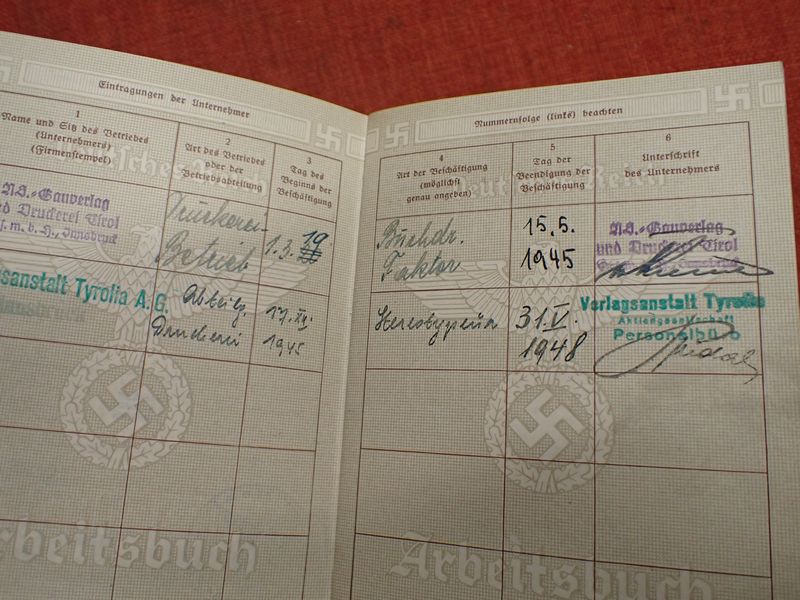 Eintragungen der Unternehmer
1
Name und Sitz des Betriebes
(Unternehmers)
(Firmenstempel)
2
Art des Betriebes
oder der
Betriebsabteilung
3
Tag des
Beginns der
Beschäftigung
N.S.-Gauverlag
und Druckerei Tirol
G.s.m.b.H., Innsbruck
Druckerei-
Betrieb
1.3.
19
sanstalt Tyrolia A.G.
Abteilg.
Druckerei
17. XII.
1945
Arbeitsbuch
Nummernfolge (links) beachten
4
Art der Beschäftigung
(möglichst
genau angeben)
5
Tag der
Beendigung der
Beschäftigung
6
Unterschrift
des Unternehmers
Buchdr.
Faktor
15.5.
1945
N.S.-Gauverlag
und Druckerei Tirol
Stereotypeur
31.V.
1948
Verlagsanstalt Tyrolia
Aktiengesellschaft
Personalbüro
Arbeitsbuch